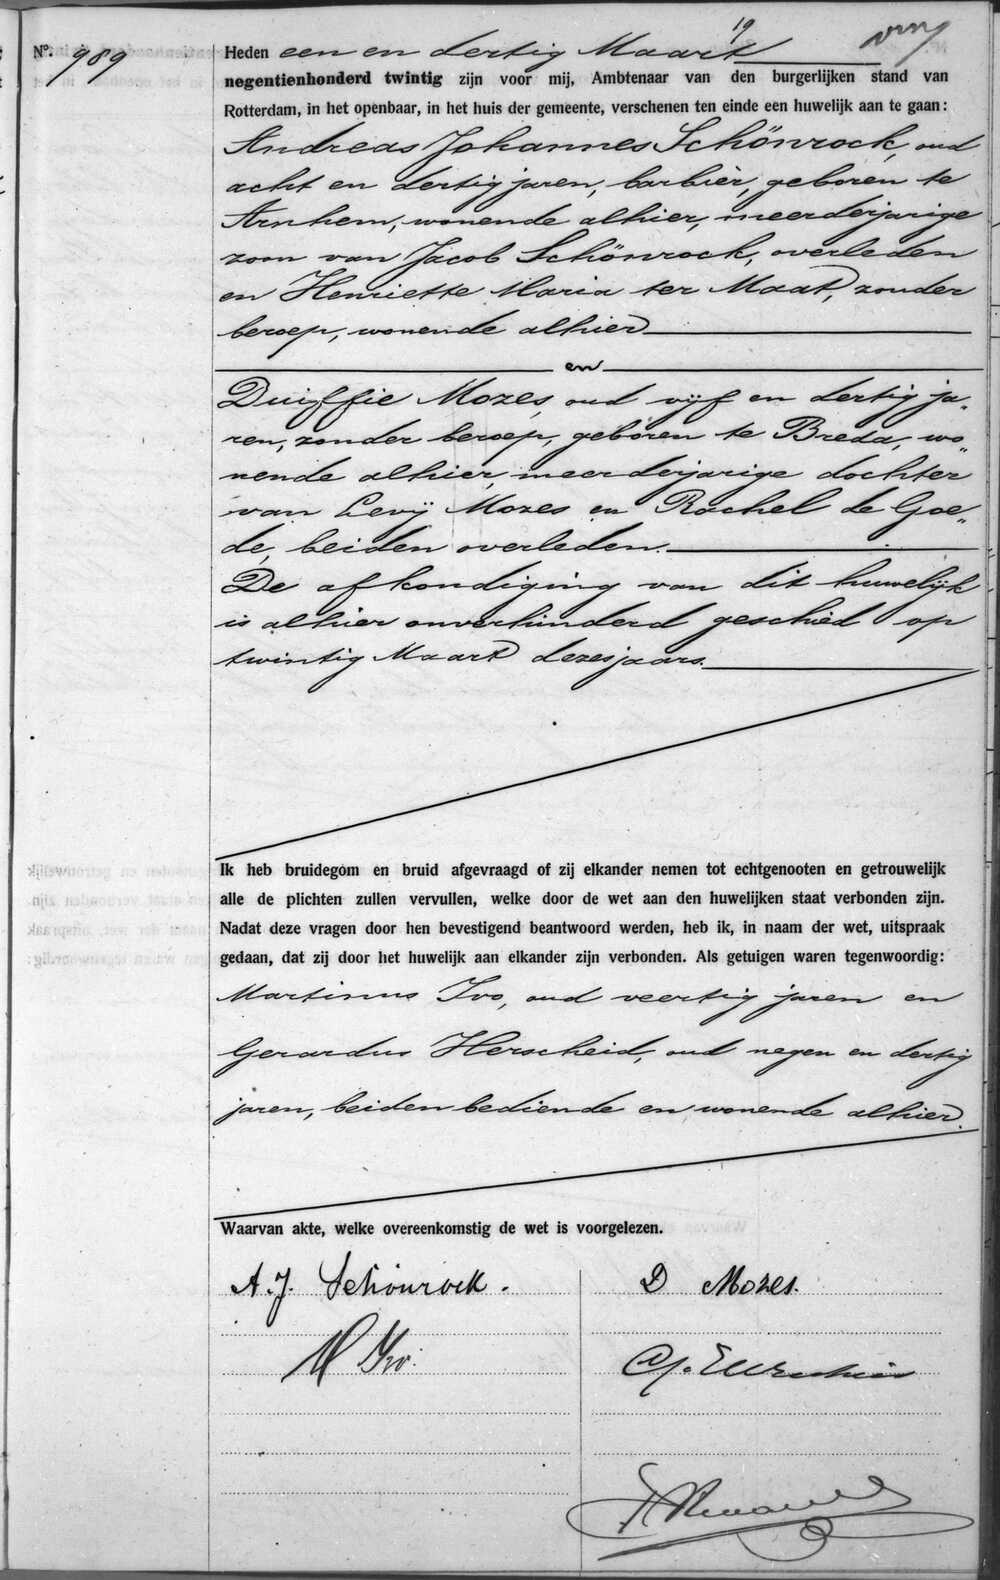 19
Nº. 989 Heden een en dertig Maart vrij
negentienhonderd twintig zijn voor mij, Ambtenaar van den burgerlijken stand van
Rotterdam, in het openbaar, in het huis der gemeente, verschenen ten einde een huwelijk aan te gaan:
Andreas Johannes Schönrock, oud
acht en dertig jaren, barbièr, geboren te
Arnhem, wonende alhier, meerderjarige
zoon van Jacob Schönrock, overleden
en Henriette Maria ter Maat, zonder
beroep, wonende alhier
en
Duiffie Mozes, oud vijf en dertig ja„
ren, zonder beroep, geboren te Breda, wo„
nende alhier, meerderjarige dochter
van Levij Mozes en Rachel de Goe„
de, beiden overleden.
De afkondiging van dit huwelijk
is alhier onverhinderd geschied op
twintig Maart dezes jaars.
Ik heb bruidegom en bruid afgevraagd of zij elkander nemen tot echtgenooten en getrouwelijk
alle de plichten zullen vervullen, welke door de wet aan den huwelijken staat verbonden zijn.
Nadat deze vragen door hen bevestigend beantwoord werden, heb ik, in naam der wet, uitspraak
gedaan, dat zij door het huwelijk aan elkander zijn verbonden. Als getuigen waren tegenwoordig:
Martinus Ivo, oud veertig jaren en
Gerardus Herscheid, oud negen en dertig
jaren, beiden bediende en wonende alhier.
Waarvan akte, welke overeenkomstig de wet is voorgelezen.
A. J. Schönrock. D Mozes.
M Ivo.